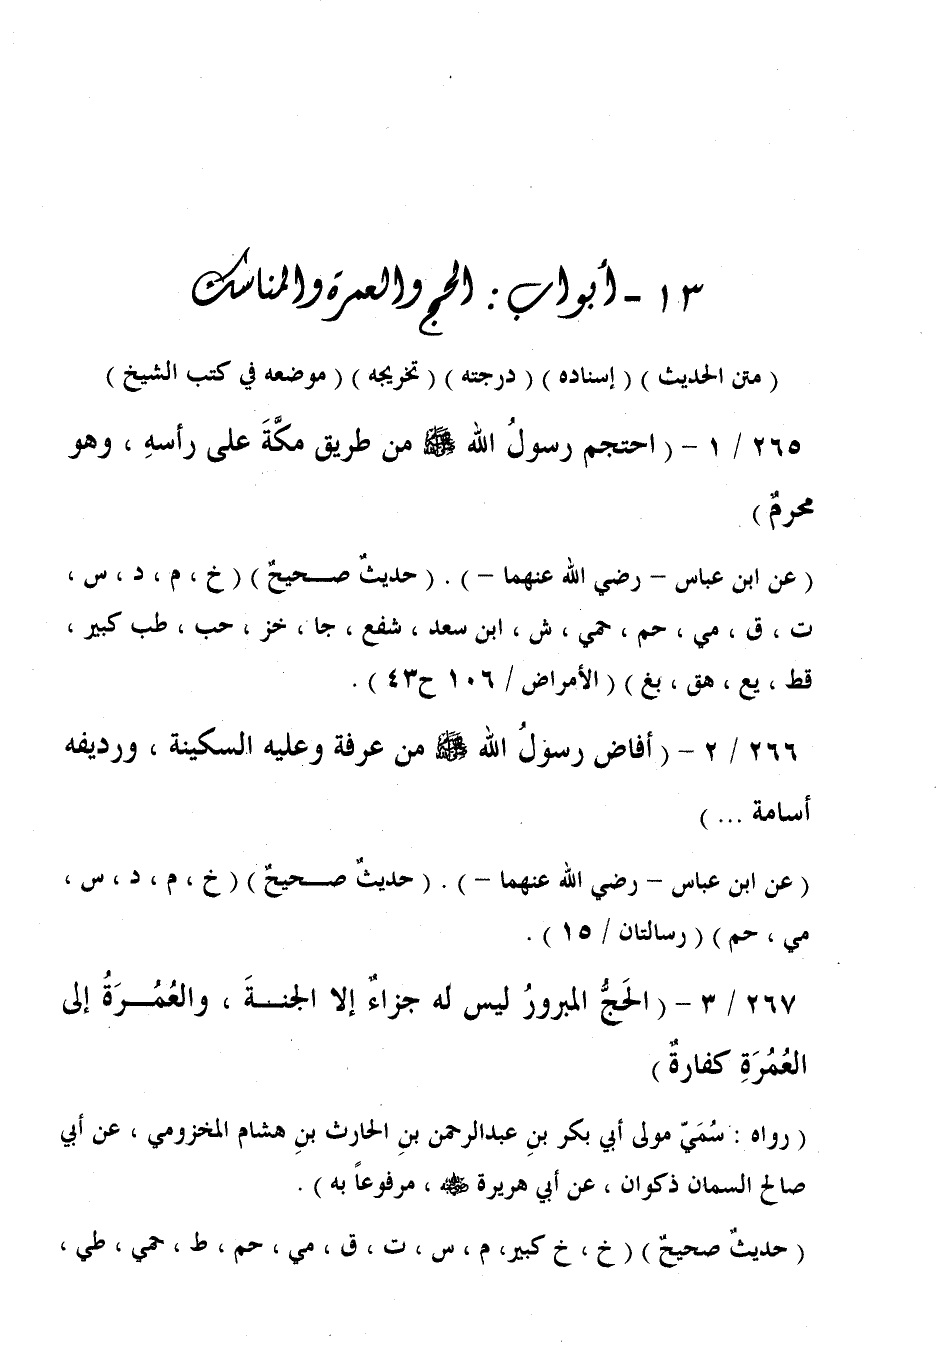 ١٣ - أبواب : الحج والعمرة والمناسك
( متن الحديث ) ( إسناده ) ( درجته ) ( تخريجه ) ( موضعه في كتب الشيخ )
٢٦٥ / ١ - ( احتجم رسولُ الله ﷺ من طريق مكَّةَ على رأسهِ ، وهو
محرمٌ )
( عن ابن عباس – رضي الله عنهما – ) . ( حديثٌ صــحيحٌ ) ( خ ، م ، د ، س ،
ت ، ق ، مي ، حم ، حمي ، ش ، ابن سعد ، شفع ، جا ، خز ، حب ، طب كبير ،
قط ، يع ، هق ، بغ ) ( الأمراض / ١٠٦ ح٤٣ ) .
٢٦٦ / ٢ - ( أفاض رسولُ الله ﷺ من عرفة وعليه السكينة ، ورديفه
أسامة ... )
( عن ابن عباس – رضي الله عنهما – ) . ( حديثٌ صــحيحٌ ) ( خ ، م ، د ، س ،
مي ، حم ) ( رسالتان / ١٥ ) .
٢٦٧ / ٣ - ( الحَجُّ المبرورُ ليس له جزاءٌ إلا الجنــةَ ، والعُمُــرَةُ إلى
العُمُرَةِ كفارةٌ )
( رواه : سُمَيّ مولى أبي بكر بنِ عبدالرحمن بنِ الحارث بنِ هشام المخزومي ، عن أبي
صالح السمان ذكوان ، عن أبي هريرة ﷺ ، مرفوعاً به ) .
( حديثٌ صحيحٌ ) ( خ ، خ كبير، م ، س ، ت ، ق ، مي ، حم ، ط ، حمي ، طي ،